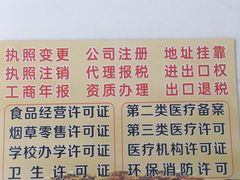 执照变更 公司注册 地址挂靠
执照注销 代理报税 进出口权
工商年报 资质办理 出口退税
食品经营许可证 第二类医疗备案
烟草零售许可证 第三类医疗许可
学校办学许可证 医疗机构许可证
卫生许可证 环保消防许可